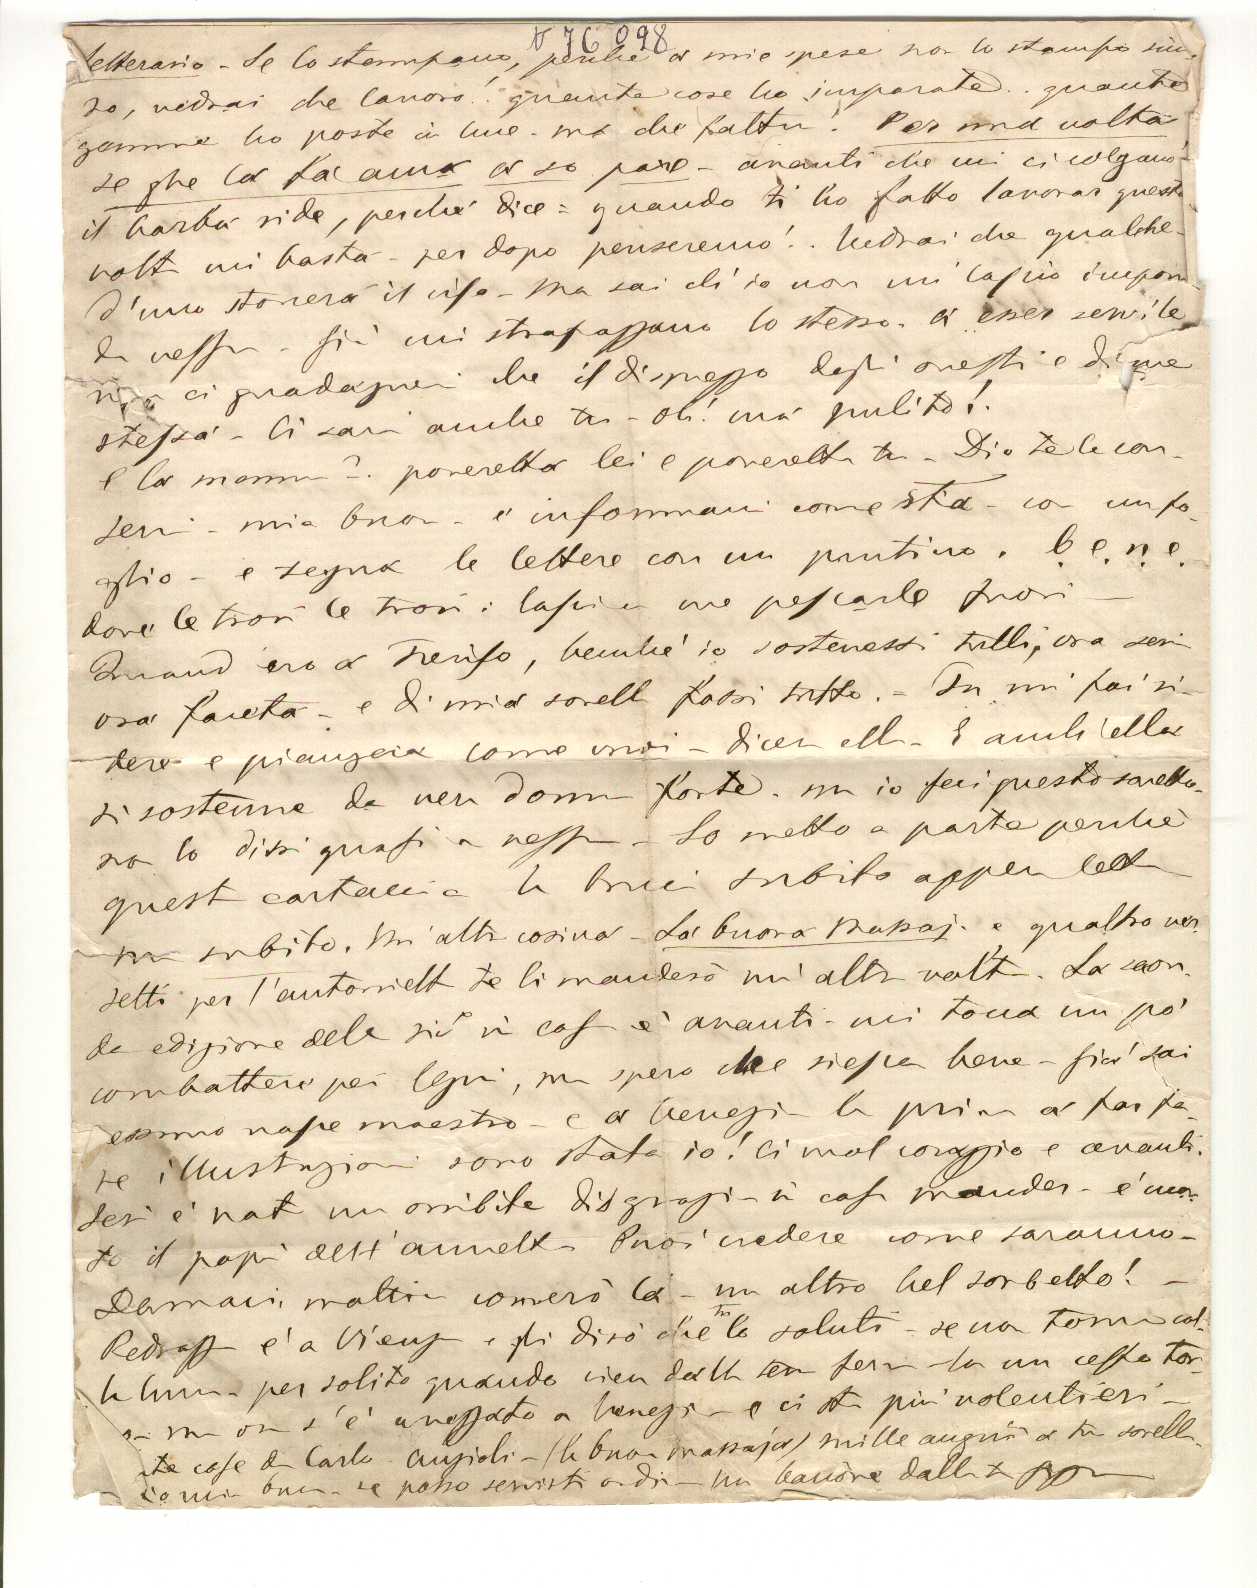 V 76 098
letterario - Se lo stampano, perchè a mie spese non lo stampo sicu-
ro, vedrai che lavoro! quante cose ho imparate.. quante
gemme ho poste in luce - ma che faltu! Per una volta
se ghe la fa anca a so pare - avanti che mi ci colgano
il barba ride, perchè dice = quando ti ho fatto lavorar questa
volta mi basta - per dopo penseremo!. Vedrai che qualche-
d'uno storcerà il viso - Ma sai ch'io non mi lascio impor
da nessun - Già mi strapazzano lo stesso. a esser servile
non ci guadagnerei che il disprezzo degli onesti e di me
stessa - Ci sarai anche tu - oh! ma pulito!.
E la mamma? poveretta lei e poveretta tu - Dio te la con-
servi - mia buona - e informami come sta - con un fo-
glio - e segna le lettere con un puntino. b.e.n.e.
dove le trovi le trovi: lascia a me pescarle fuori -
Quand'ero a Treviso, benchè io sostenessi tutti, ora seria
ora faceta - e di mia sorella fossi tutto. - Tu mi fai ri-
dere e piangere come vuoi - diceva ella - E anch'ella
si sostenne da vera donna forte. ma io feci questo sonetto.
non lo dissi quasi a nessun - Lo metto a parte perchè
questa cartaccia la bruci subito appena letta
ma subito. Un'altra cosina - La buona Massaja. e quattro ver-
setti per l'automielta te li manderò un'altra volta. La secon-
da edizione della in casa è avanti - mi tocca un pò
combattere pei legni, ma spero che riesca bene - già sai
nasce maestro - e a Venezia la prima a far fa-
re illustrazioni sono stata io! Ci vuol coraggio e avanti.
Ieri è nata un orribile disgrazia in casa Mander - è mor-
to il papà dell'Annetta Puoi credere come saranno -
Domani mattina correrò là - un altro bel sorbetto! -
Pedrazza è a Vienza e gli dirò che tu lo saluti - se non torna col-
la luna - per solito quando vien dalla terra ferma ha un ceffo tor-
ma ora s'è avezzato a Venezia e ci sta più volentieri -
cose da Carlo. Anzioli - (la buona massaja) mille augurii a tua sorella -
mia buona se posso servirti ordina - Un bacione dalla tua